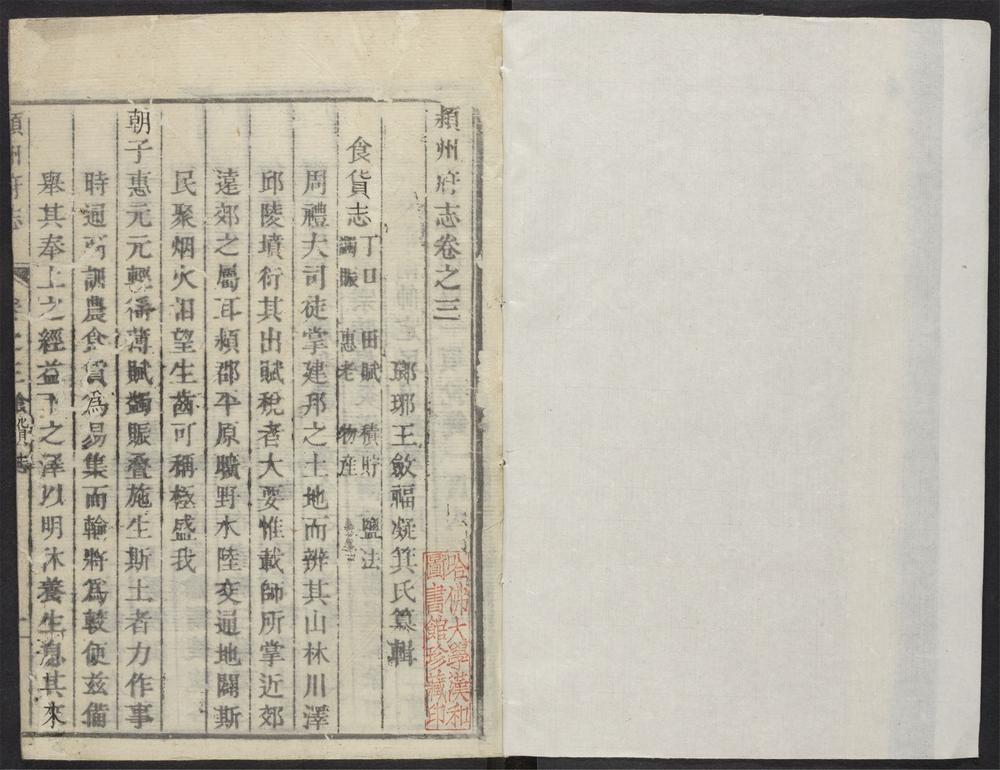 頴州府志卷之三
瑯琊王斂福凝箕氏纂輯
食貨志 丁口 田賦 積貯 鹽法
蠲賑 惠老 物産
周禮大司徒掌建邦之土地而辨其山林川澤
邱陵墳衍其出賦稅者大要惟載師所掌近郊
遠郊之屬耳頴郡平原曠野水陸交通地闢斯
民聚烟火相望生齒可稱極盛我
朝子惠元元輕徭薄賦蠲賑疊施生斯土者力作事
時通商訓農食貨爲易集而輸將爲較便茲備
舉其奉上之經益下之澤以明沐養生息其來
頴州府志 卷之三 食貨志 一
哈佛大學漢和
圖書館珍藏印